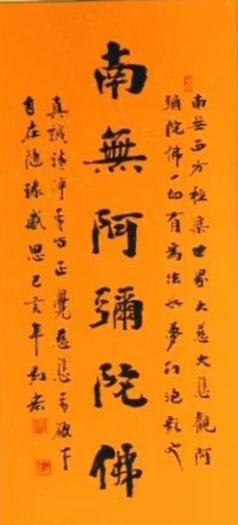 南無西方極樂世界大慈大悲觀阿
彌陀佛一切有為法如夢幻泡影
南無阿彌陀佛
真誠清淨平等正覺慈悲看破放下
自在隨緣感恩己亥年